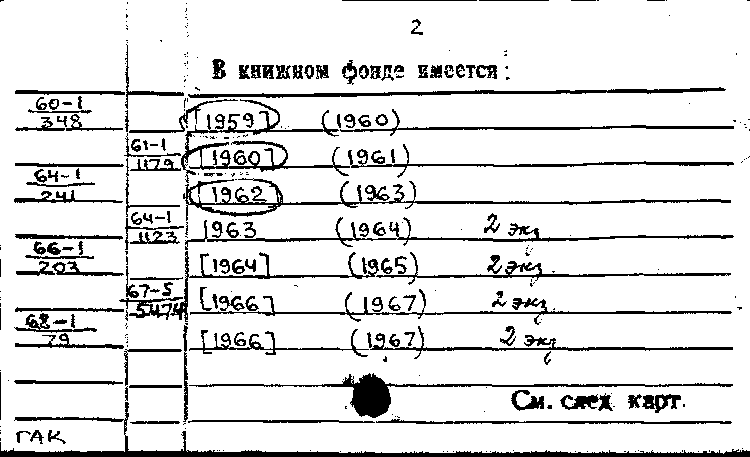 2
В книжном фонде имеется:
60-1/348 [1959] (1960)
61-1/1179 [1960] (1961)
64-1/241 [1962] (1963)
64-1/1123 1963 (1964) 2 экз
66-1/203 [1964] (1965) 2 экз
67-5/5474 [1966] (1967) 2 экз
68-1/79 [1966] (1967) 2 экз
См. след. карт.
ГАК